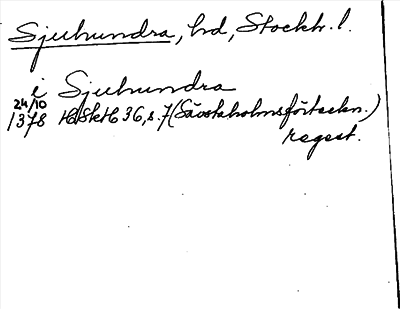 Sjuhundra, hd, Stockh. l.
i Sjuhundra
24/10
1378 HdSkH 36, s. 7 (Sävstaholmsförteckn.)
regest.